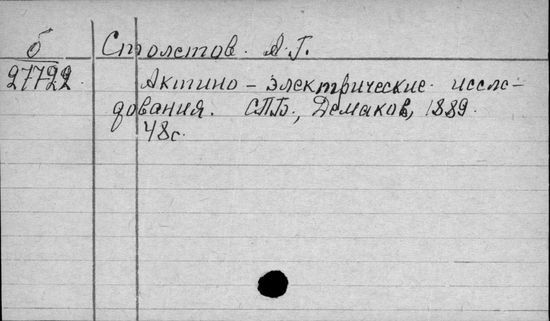 б Столетов. А.Г.
27722 Актино - электрические иссле-
дования. СПБ., Демаков, 1889.
48с.